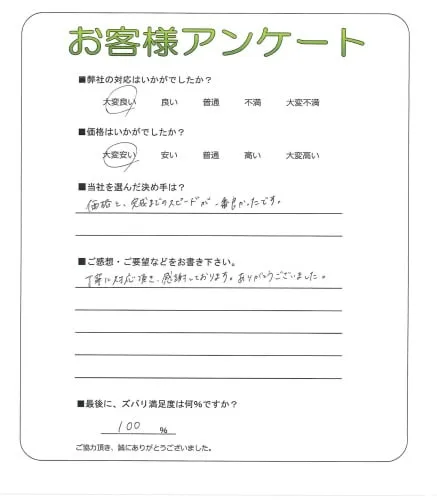 お客様アンケート
■弊社の対応はいかがでしたか？
大変良い 良い 普通 不満 大変不満
■価格はいかがでしたか？
大変安い 安い 普通 高い 大変高い
■当社を選んだ決め手は？
価格と、完成までのスピードが一番良かったです。
■ご感想・ご要望などをお書き下さい。
丁寧に対応頂き、感謝しております。ありがとうございました。
■最後に、ズバリ満足度は何%ですか？
100 %
ご協力頂き、誠にありがとうございました。